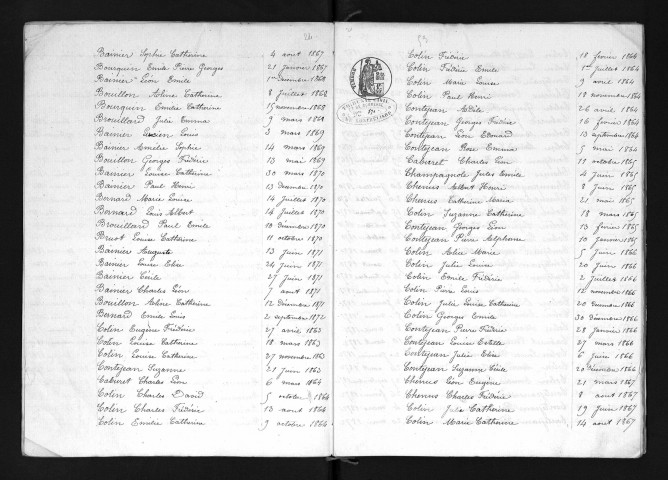 Bainier Sophie Catherine 4 aout 1867
Bourquin Emile Pierre Georges 21 janvier 1867
Bainier Léon Emile 1er Décembre 1868
Bouillon Aline Catherine 8 Juillet 1868
Bourquin Emélie Catherine 15 novembre 1868
Brouillard Julie Emma 9 mars 1868
Bainier Lucien Louis 3 mars 1869
Bainier Amélie Sophie 14 mars 1869
Bouillon Georges Frédéric 13 mai 1869
Bainier Louise Catherine 30 mars 1870
Bainier Paul Henri 13 Décembre 1870
Bernard Marie Louise 14 Juillet 1870
Bernard Louis Albert 14 Juillet 1870
Brouillard Paul Emile 10 Décembre 1870
Bruot Louise Catherine 11 octobre 1870
Bainier Auguste 13 Juin 1871
Bainier Louise Elise 24 Juin 1871
Bainier Cécile 27 Juin 1871
Bainier Charles Léon 7 aout 1871
Bouillon Aline Catherine 12 Décembre 1871
Bernard Emile Louis 2 septembre 1872
Colin Eugène Frédéric 27 avril 1863
Colin Louise Catherine 18 mars 1863
Colin Louise Catherine 27 novembre 1863
Contejean Suzanne 21 Juin 1863
Cabaret Charles Léon 6 mars 1864
Colin Charles David 5 octobre 1864
Colin Charles Frédéric 13 aout 1864
Colin Emélie Catherine 9 octobre 1864
Colin Frédéric 18 février 1864
Colin Frédéric Emile 1er Juillet 1864
Colin Marie Louise 9 avril 1864
Colin Paul Henri 18 novembre 1864
Contejean Adèle 26 avril 1864
Contejean Georges Frédéric 16 février 1864
Contejean Léon Edouard 13 septembre 1864
Contejean Rose Emma 5 mai 1864
Cabaret Charles Léon 11 octobre 1865
Champagnole Jules Emile 4 Juin 1865
Chenus Albert Henri 8 Juin 1865
Chenus Catherine Maria 21 mai 1865
Colin Suzanne Catherine 18 mars 1865
Contejean Georges Léon 13 février 1865
Contejean Pierre Alphonse 10 Janvier 1865
Colin Alice Marie 5 Juin 1866
Colin Julie Louise 20 Juin 1866
Colin Emile Frédéric 2 Juillet 1866
Colin Pierre Louis 12 novembre 1866
Colin Julie Louise Catherine 20 Décembre 1866
Colin Georges Emile 30 Décembre 1866
Contejean Pierre Frédéric 28 Janvier 1866
Contejean Louise Estelle 27 mars 1866
Contejean Julie Elise 6 Juin 1866
Contejean Suzanne Cécile 20 Décembre 1866
Chenus Léon Eugène 21 mars 1867
Chenus Charles Frédéric 8 aout 1867
Colin Julie Catherine 19 Juin 1867
Colin Marie Catherine 14 aout 1867